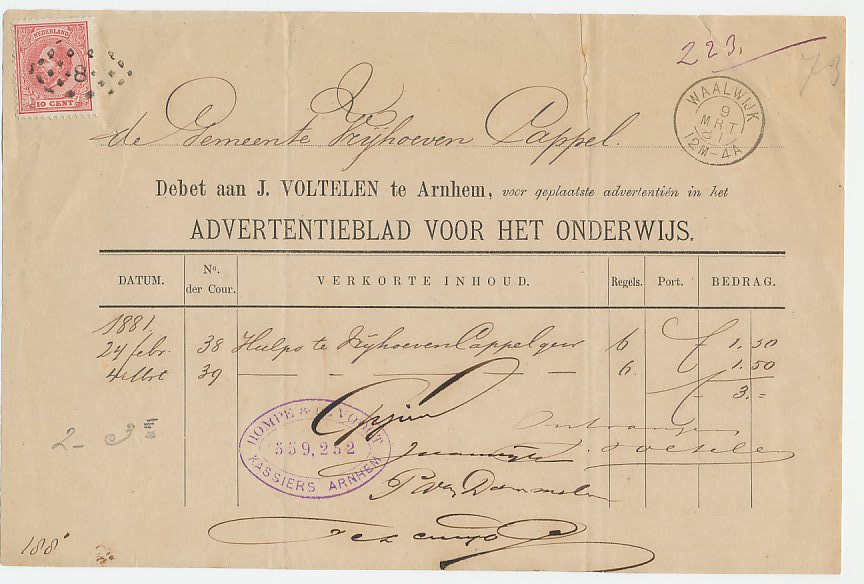 NEDERLAND
10 CENT
8
223.
73
WAALWIJK
9
MRT
12M-4A
de Gemeente Vrijhoeven Cappel.
Debet aan J. VOLTELEN te Arnhem, voor geplaatste advertentiën in het
ADVERTENTIEBLAD VOOR HET ONDERWIJS.
DATUM. No. der Cour. VERKORTE INHOUD. Regels. Port. BEDRAG.
1881.
24 febr. 38 Hulpo te Vrijhoeven Cappel 6 f 1.50
4 Mrt 39 — — — — 6. 1.50
f 3.=
Ontvangen
Voltelen
ROMPE & DE VOOGT
559,252
KASSIERS ARNHEM
2- 3
P van
188